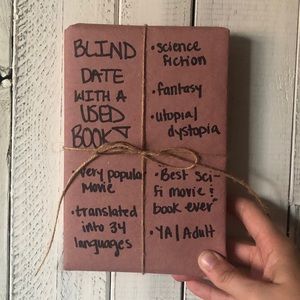 BLIND
DATE
WITH A
USED
BOOK
• science
fiction
• fantasy
• utopia/
dystopia
• very popular
movie
• translated
into 34
languages
• "Best sci-
fi movie &
book ever"
• YA/Adult